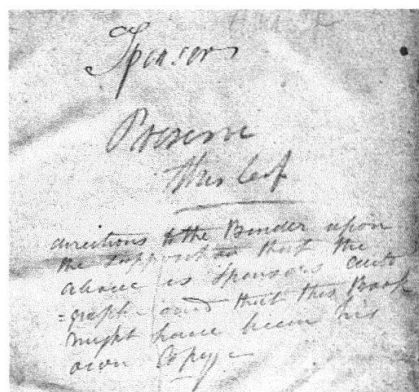 Spensers
Preserve
this leaf
directions to the Binder upon
the supposition that the
above is Spensers auto
=graph - and that this Book
might have been his
own Copy -